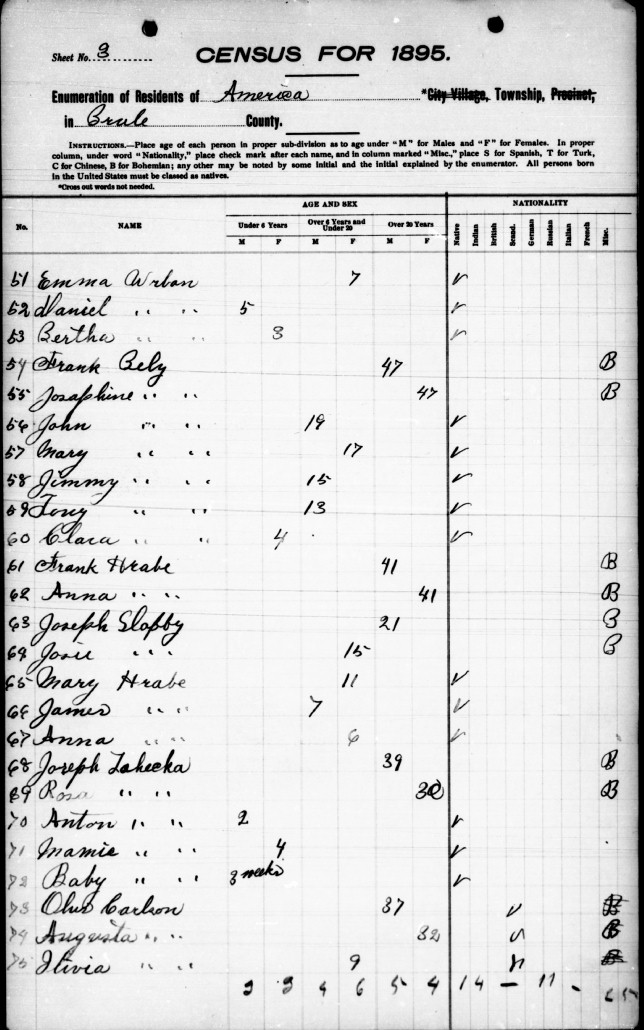 Sheet No. 3
CENSUS FOR 1895.
Enumeration of Residents of America *City Village, Township, Precinct,
in Brule County.
INSTRUCTIONS.—Place age of each person in proper sub-division as to age under "M" for Males and "F" for Females. In proper
column, under word "Nationality," place check mark after each name, and in column marked "Misc.," place S for Spanish, T for Turk,
C for Chinese, B for Bohemian; any other may be noted by some initial and the initial explained by the enumerator. All persons born
in the United States must be classed as natives.
*Cross out words not needed.
AGE AND SEX NATIONALITY
No. NAME Under 6 Years Over 6 Years and Under 20 Over 20 Years Native Indian British Scand. German Russian Italian French Misc.
M F M F M F
51 Emma Urban 7 ✓
52 Daniel " " 5 ✓
53 Bertha " " 3 ✓
54 Frank Bely 47 B
55 Josaphine " " 47 B
56 John " " 19 ✓
57 Mary " " 17 ✓
58 Jimmy " " 15 ✓
59 Tony " " 13 ✓
60 Clara " " 4 ✓
61 Frank Hrabe 41 B
62 Anna " " 41 B
63 Joseph Slobby 21 B
64 Josie " " 15 B
65 Mary Hrabe 11 ✓
66 James " " 7 ✓
67 Anna " " 6 ✓
68 Joseph 39 B
69 Rosa " " B
70 Anton " " 2 ✓
71 Mamie " " 4 ✓
72 Baby " " 3 weeks ✓
73 Olus Carlson 37 ✓ B
74 Augusta " " 32 ✓ B
75 " " 9 ✓ B
3 3 4 6 5 4 14 – 11 -